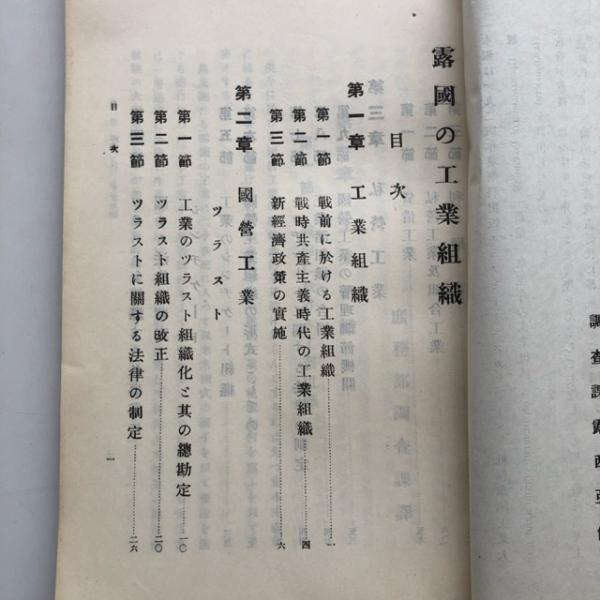 調査課露西亞
露國の工業組織
目次
第一章 工業組織
第一節 戰前に於ける工業組織…………一
第二節 戰時共産主義時代の工業組織…………四
第三節 新經濟政策の實施…………六
第二章 國營工業
ツラスト
第一節 工業のツラスト組織化と其の總勘定…………一〇
第二節 ツラスト組織の改正…………二〇
第三節 ツラストに關する法律の制定…………二六
目次
一